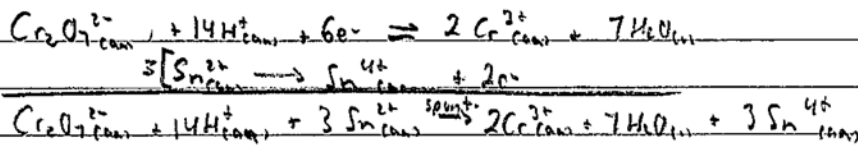 Cr₂O₇²⁻(aq) + 14H⁺(aq) + 6e⁻ ⇌ 2Cr³⁺(aq) + 7H₂O(l)
3[Sn²⁺(aq) → Sn⁴⁺(aq) + 2e⁻
Cr₂O₇²⁻(aq) + 14H⁺(aq) + 3Sn²⁺(aq) spont. → 2Cr³⁺(aq) + 7H₂O(l) + 3Sn⁴⁺(aq)